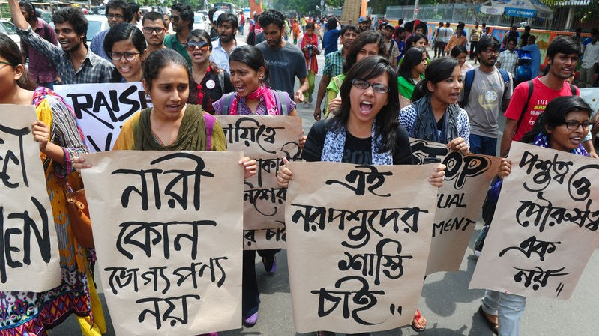 RAISE
MEN
নারী
কোন
ভোগ্যপণ্য
নয়
চাই
এই
নরপশুদের
শাস্তি
চাই"
OP
UAL
MENT
পশুত্ব ও
পৌরুষত্ব
এক
নয়"